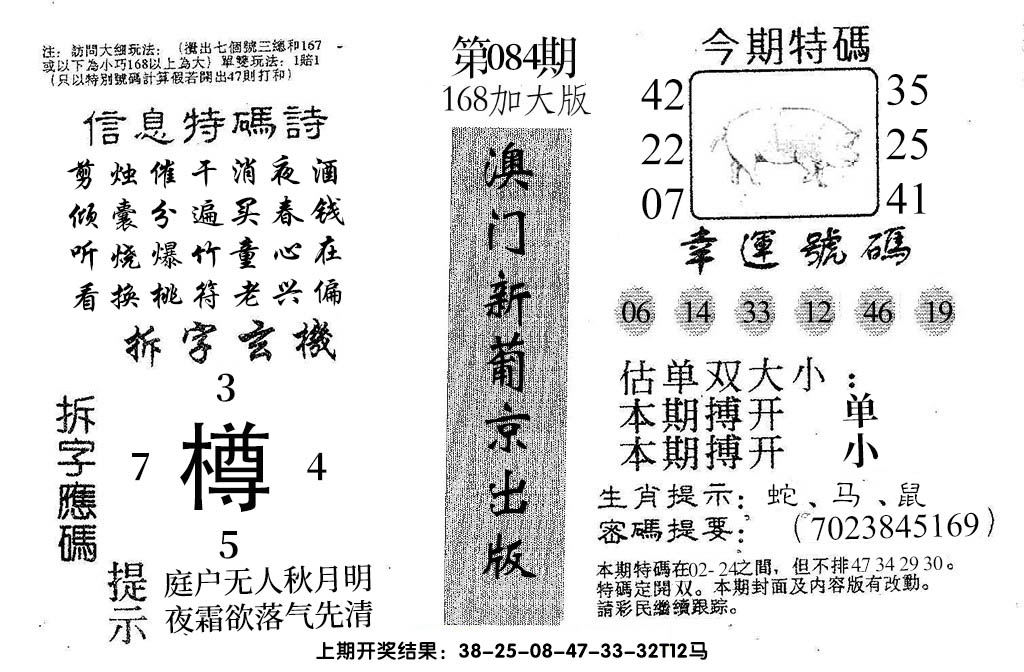 注：訪問大细玩法：（攪出七個號三總和167
或以下為小巧168以上為大）單雙玩法：1賠1
（只以特別號碼計算假若開出47則打和）
信息特碼詩
剪烛催干消夜酒
倾囊分遍买春钱
听烧爆竹童心在
看换桃符老兴偏
拆字玄機
拆字應碼
3
7 樽 4
5
提示
庭户无人秋月明
夜霜欲落气先清
第084期
168加大版
澳门新葡京出版
今期特碼
42 35
22 25
07 41
幸運號碼
06 14 33 12 46 19
估单双大小：
本期搏开 单
本期搏开 小
生肖提示：蛇、马、鼠
密碼提要：（7023845169）
本期特碼在02-24之間，但不排47 34 29 30。
特碼定開双。本期封面及内容版有改動。
請彩民繼續跟踪。
上期开奖结果：38-25-08-47-33-32T12马